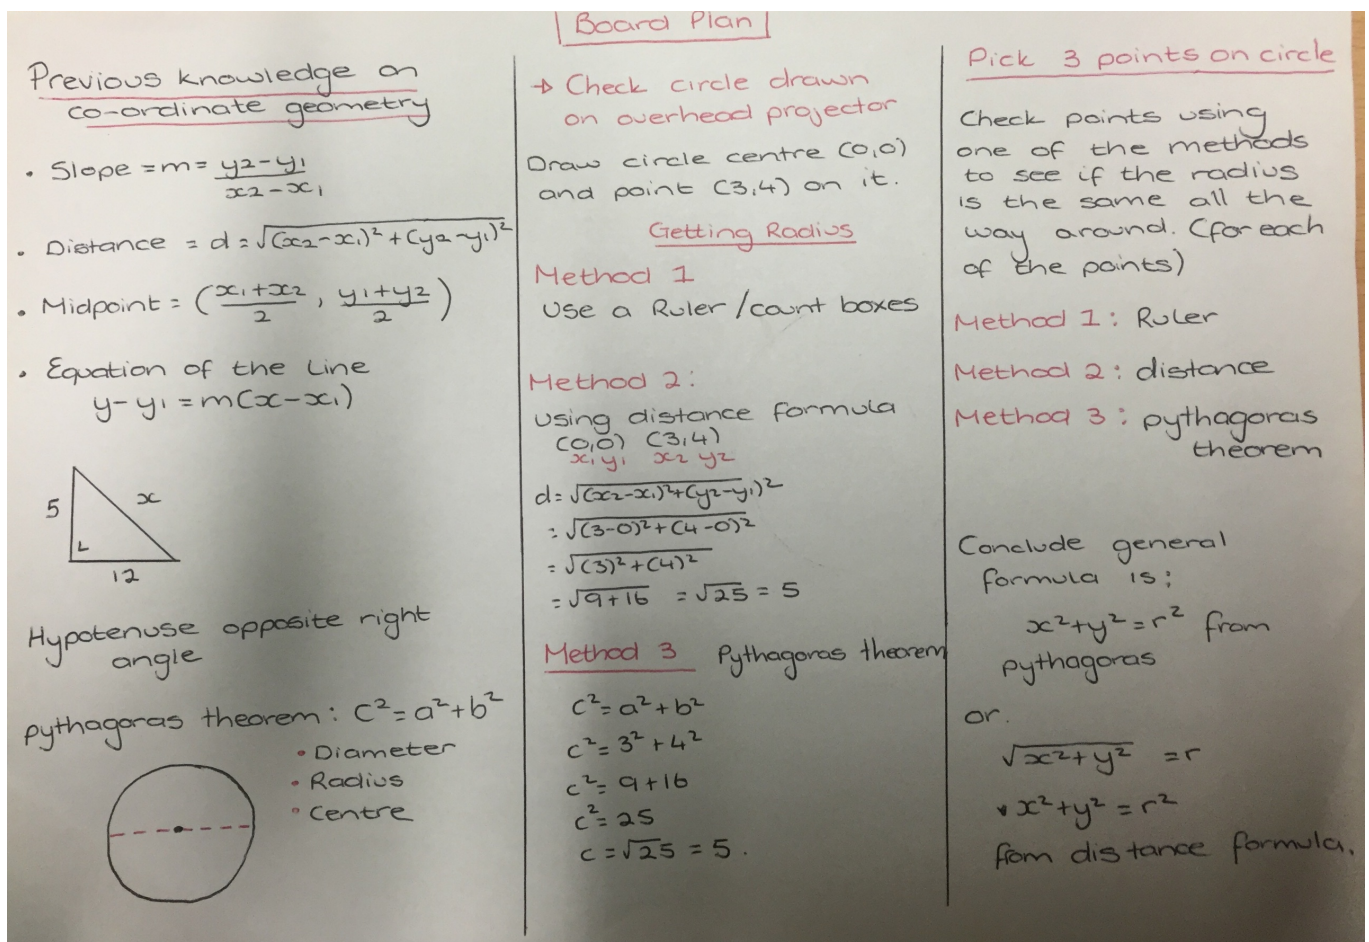 Board Plan
Previous knowledge on
co-ordinate geometry
• Slope = m = y2-y1 / x2-x1
• Distance = d = √(x2-x1)² + (y2-y1)²
• Midpoint = (x1+x2 / 2 , y1+y2 / 2)
• Equation of the Line
y-y1 = m(x-x1)
5
x
12
Hypotenuse opposite right
angle
pythagoras theorem: c² = a² + b²
• Diameter
• Radius
• Centre
→ Check circle drawn
on overhead projector
Draw circle centre (0,0)
and point (3,4) on it.
Getting Radius
Method 1
Use a Ruler / count boxes
Method 2:
using distance formula
(0,0) (3,4)
x1 y1 x2 y2
d = √(x2-x1)²+(y2-y1)²
= √(3-0)²+(4-0)²
= √(3)²+(4)²
= √9+16 = √25 = 5
Method 3 Pythagoras theorem
c² = a² + b²
c² = 3² + 4²
c² = 9+16
c² = 25
c = √25 = 5.
Pick 3 points on circle
Check points using
one of the methods
to see if the radius
is the same all the
way around. (for each
of the points)
Method 1: Ruler
Method 2: distance
Method 3: pythagoras
theorem
Conclude general
formula is:
x²+y² = r² from
pythagoras
or.
√x²+y² = r
• x²+y² = r²
from distance formula.